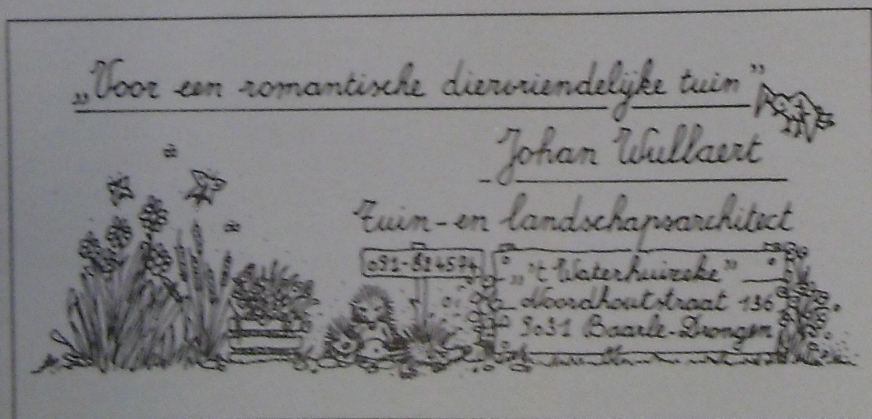 „Voor een romantische diervriendelijke tuin”
Johan Wullaert
Tuin- en landschapsarchitect
091-824574
„'t Waterhuizeke”
Noordhoutstraat 136
9031 Baarle-Drongen